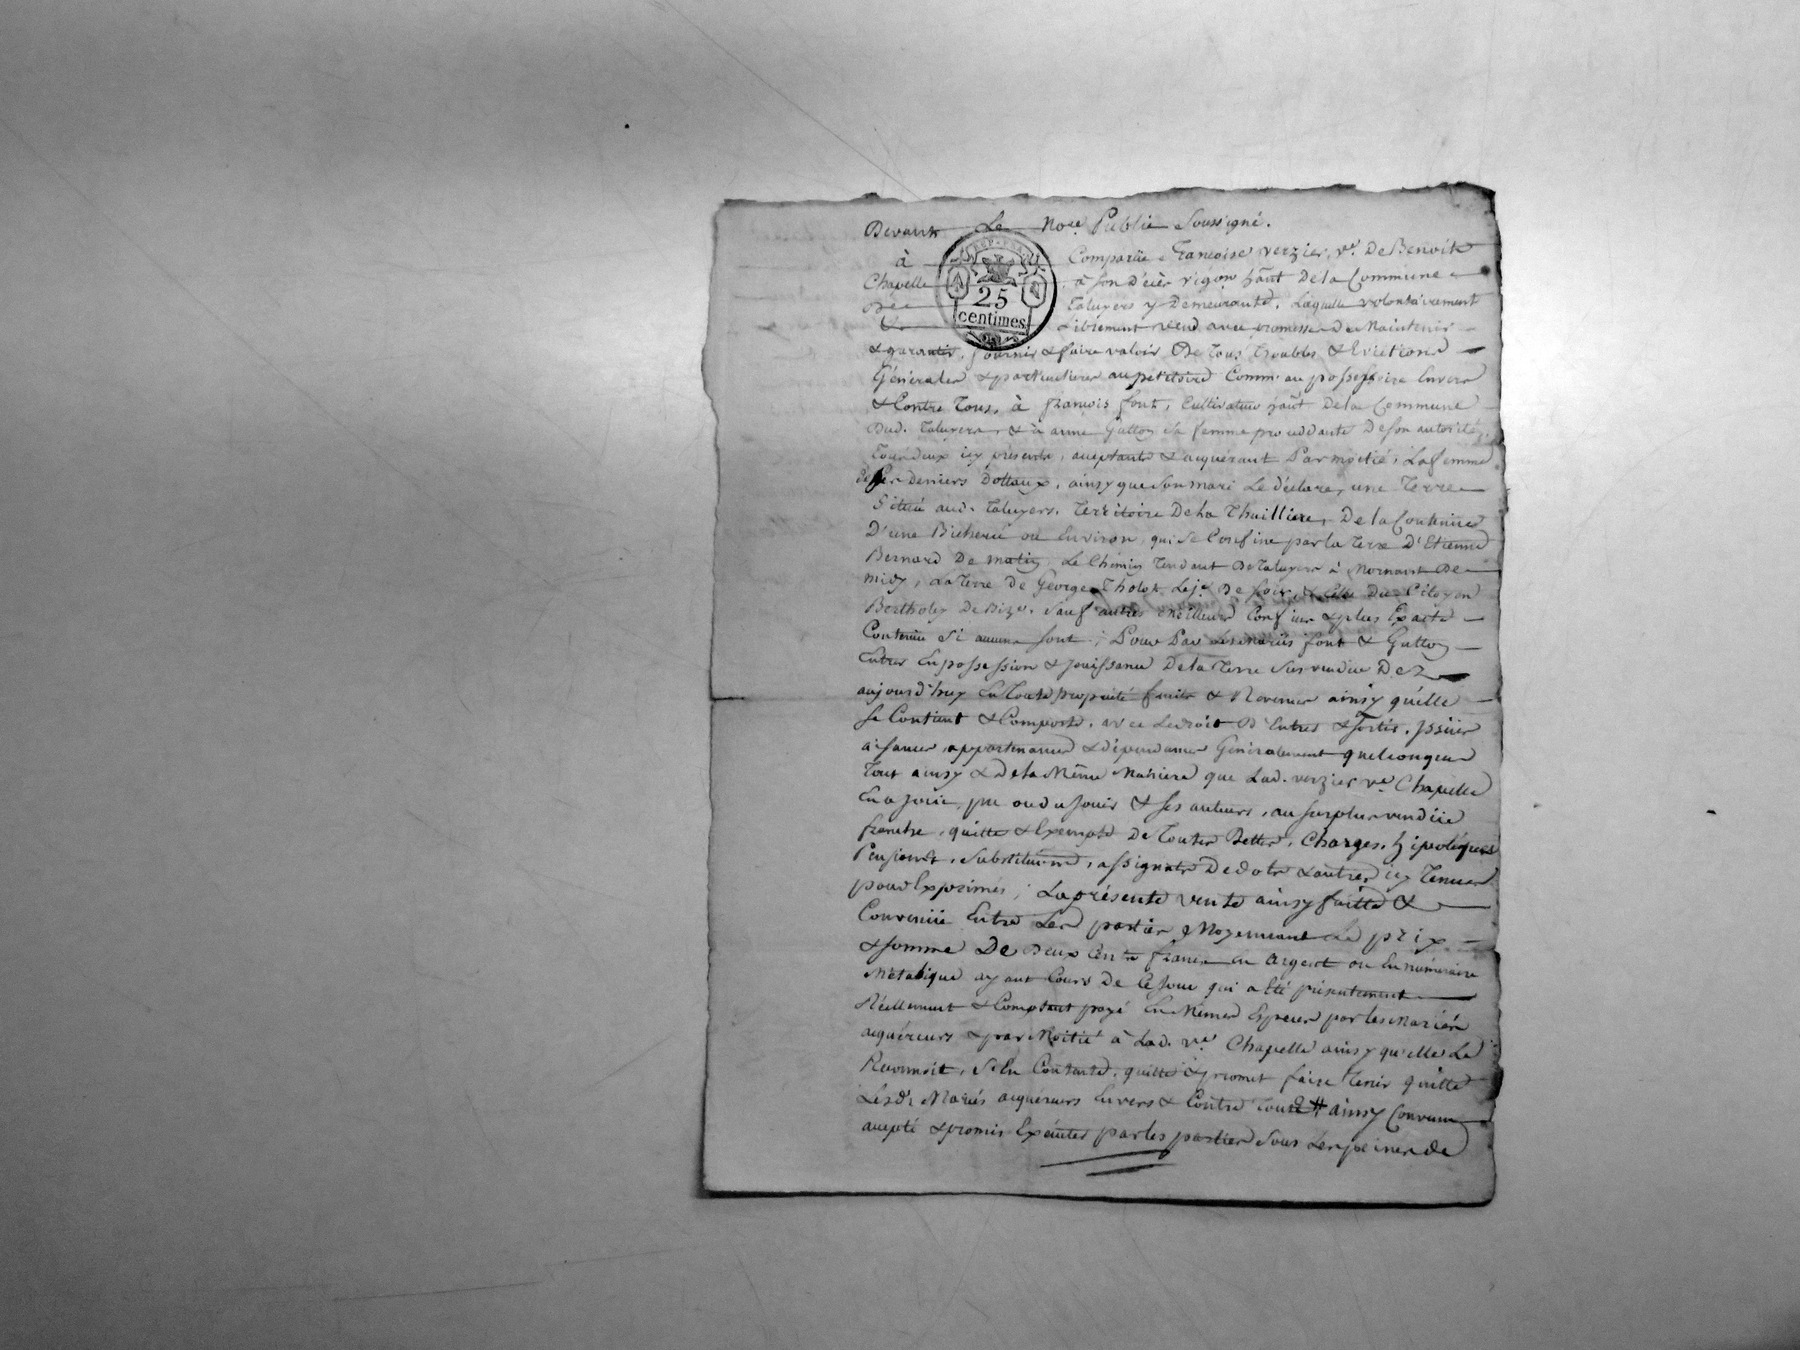 Devant Le No.re Public Soussigné.
à Comparüe Francoise verzier, v.e De Benoit
REP. FRA.
25
centimes
Chapelle à son décès vigon hãnt De la Commune
De Taluyers y Demeurante, Laquelle volontairement
& Librement vend avec promesse De Maintenir
& garantir, fournir & faire valoir De Tous Troubles & Evictions
Générales & particulieres au pétitoire Comm' au possessoire Envers
& Contre Tous, à francois font, Cultivateur hãnt De la Commune
Dud. Taluyers, & à anne Gutton sa femme procédante De son autorité,
Tous deux icy présents, acceptants & acquérant Par moitié, La femme
De Ses Deniers Dottaux, ainsy que Son mari Le Déclare, une Terre
Située aud. Taluyers, Territoire De La Thuilliere, De la Contenue
D'une Bicherée ou Environ, qui Se Confine par la Terre D'Etienne
Bernard De matin, Le Chemin Tendant De Taluyers à Mornant De
midy, La Terre De George Tholot Le j.e De soir, & Celle Du Citoyen
Bertholey De Bize, Sauf autres meilleurs Confins & plus Exacte
Contenue Si aucuns sont ; Pour Par Les mariés font & Gutton
Entrer En possession & jouissance De la Terre Sus vendue Dez
aujourd'huy En Toute propriété fruits & Revenus ainsy qu'elle
se Contient & Comporte, avec Le Droit D'Entrer & sortir, jssües
aisances, appartenances & dépendances Généralement quelconques
Tout ainsy & De la Même Maniere que Lad. verzier v.e Chapelle
En a Joüi, pu ou du Jouir & ses auteurs, au surplus vendüe
franche, quitte & Exempte De Toutes Dettes, Charges, hipoteques
Pensions, Substitutions, assignats De dots & autres icy Tenues
pour Exprimés ; La présente vente ainsy faitte &
Convenüe Entre Les parties Moyennant Le prix
& somme De Deux Cents francs en argent ou En numéraire
Métalique ayant Cours De Ce Jour qui a Eté présentement
Réellement & Comptant payé En Mêmes Especes par les Mariés
acquéreurs & par Moitié à Lad. v.e Chapelle ainsy qu'elle Le
Reconnoit, S'En Contente, quitte & promet faire Tenir quitte
Lesd. Mariés acquéreurs Envers & Contre Tous # ainsy Convenu
accepté & promis Exécuter par les parties Sous Les peines de